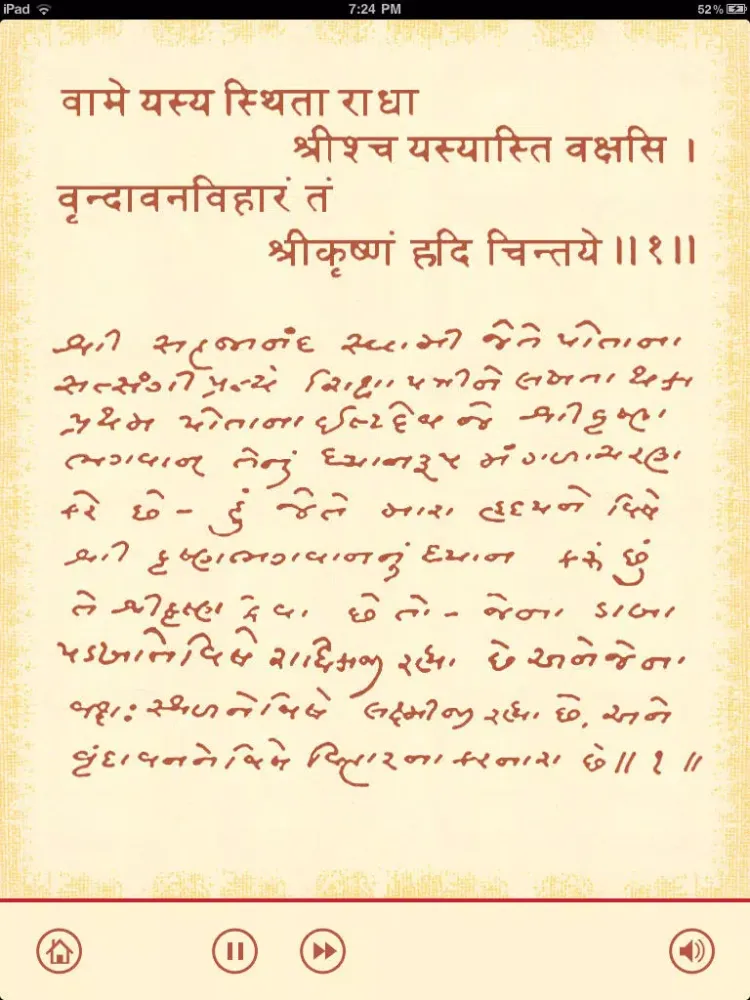 iPad 7:24 PM 52%
वामे यस्य स्थिता राधा
श्रीश्च यस्यास्ति वक्षसि ।
वृन्दावनविहारं तं
श्रीकृष्णं हृदि चिन्तये ॥१॥
श्री सहजानंद स्वामी जेते पोताना
સત્સંગી પ્રત્યે શિક્ષાપત્રીને લખતા થકા
પ્રથમ પોતાના ઈષ્ટદેવ જે શ્રીકૃષ્ણ
ભગવાન્ તેનું ધ્યાનરૂપ મંગળાચરણ
કરે છે - હું જેતે મારા હૃદયને વિષે
શ્રી કૃષ્ણભગવાનનું ધ્યાન કરું છું
તે શ્રીકૃષ્ણ કેવા છે તો - જેના ડાબા
પડખાનેવિષે રાધિકાજી રહ્યાં છે અનેજેના
વક્ષઃસ્થળનેવિષે લક્ષ્મીજી રહ્યાં છે, અને
વૃંદાવનનેવિષે વિહારના કરનારા છે॥ ૧ ॥